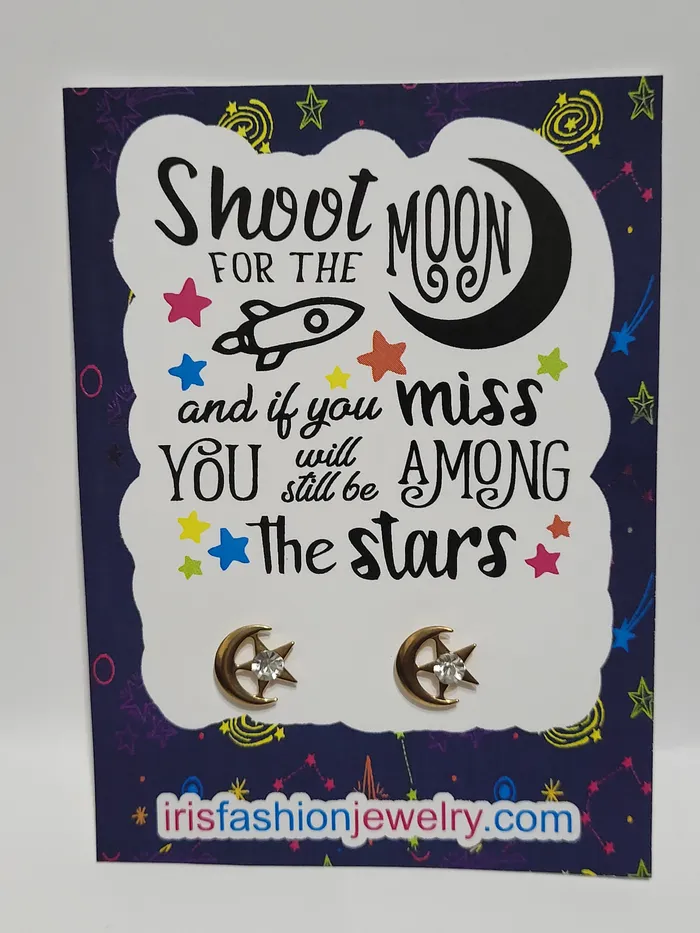 Shoot
FOR THE MOON
and if you miss
YOU will still be AMONG
The stars
irisfashionjewelry.com